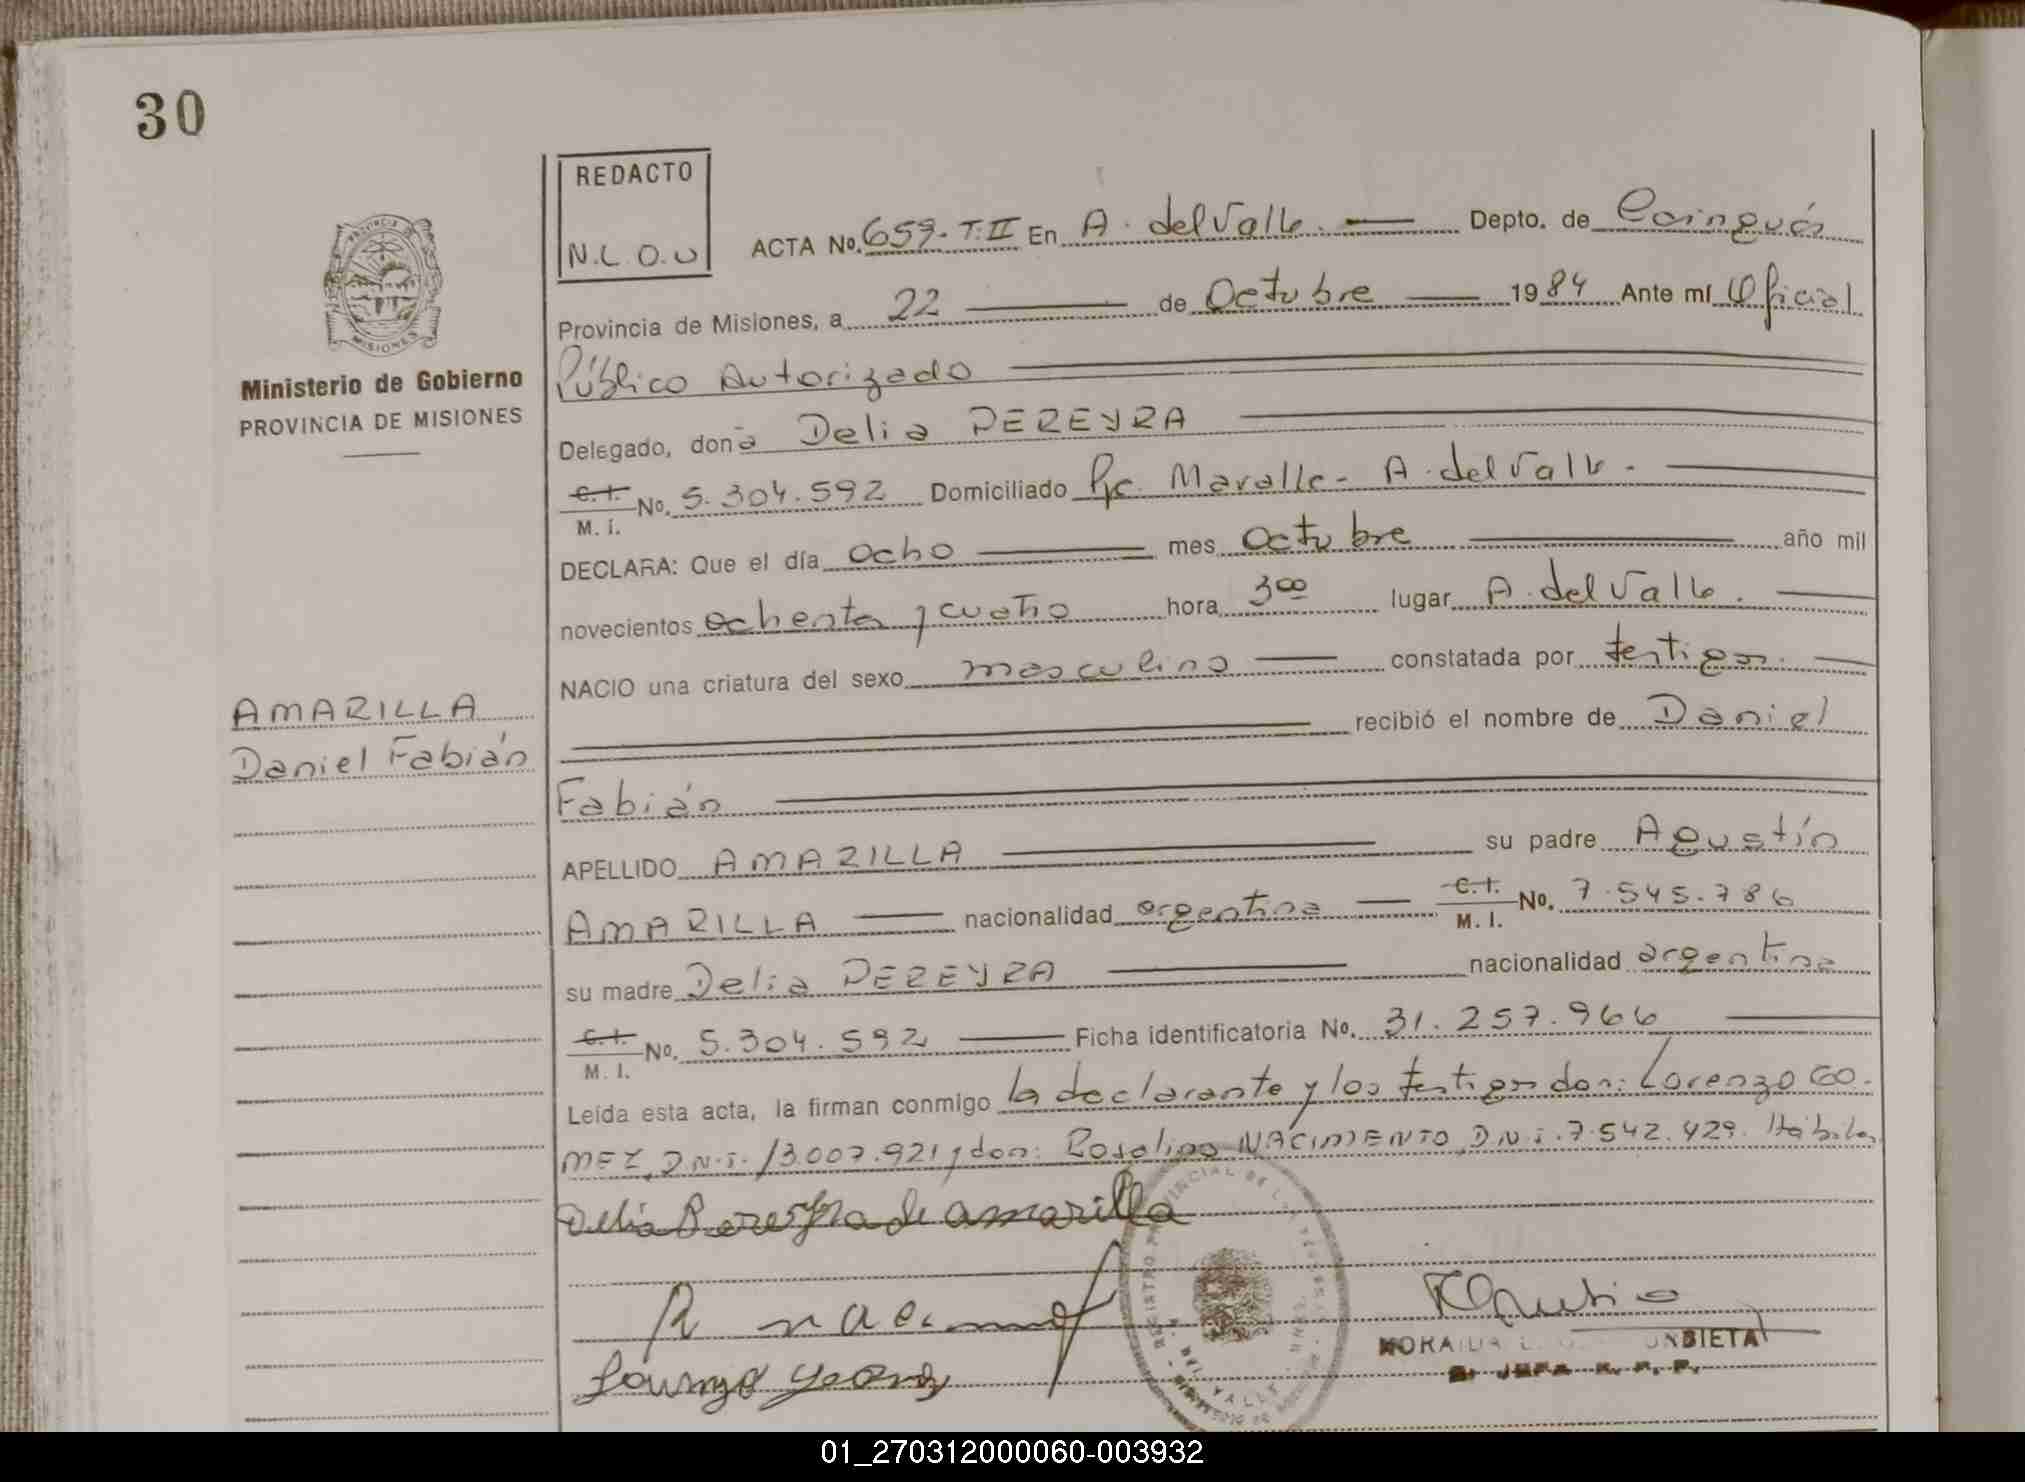 30
REDACTO
N.L.O.U
ACTA No. 659-T:II En A. del Valle. Depto. de Cainguás
Provincia de Misiones, a 22 de Octubre 1984 Ante mí Oficial
Público Autorizado
Ministerio de Gobierno
PROVINCIA DE MISIONES
Delegado, doña Delia PEREYRA
C.I. M. I. No. 5.304.592 Domiciliado Pje. Maralle- A. del Valle.
DECLARA: Que el día ocho mes octubre año mil
novecientos ochenta y cuatro hora 3°° lugar A. del Valle.
NACIO una criatura del sexo masculino constatada por testigos.
recibió el nombre de Daniel
AMARILLA
Daniel Fabián
Fabián
APELLIDO AMARILLA su padre Agustín
AMARILLA nacionalidad argentina C.I. M. I. No. 7.545.786
su madre Delia PEREYRA nacionalidad argentina
C.I. M. I. No. 5.304.592 Ficha identificatoria No. 31.257.966
Leída esta acta, la firman conmigo la declarante y los testigos don: Lorenzo GO-
MEZ, D.N.I. 13.007.921 y don: Rosalino NACIMIENTO, D.N.I. 7.542.429. Hábiles
Delia Pereyra de amarilla
REGISTRO PROVINCIAL DE LAS PERSONAS
VALLE
01_270312000060-003932